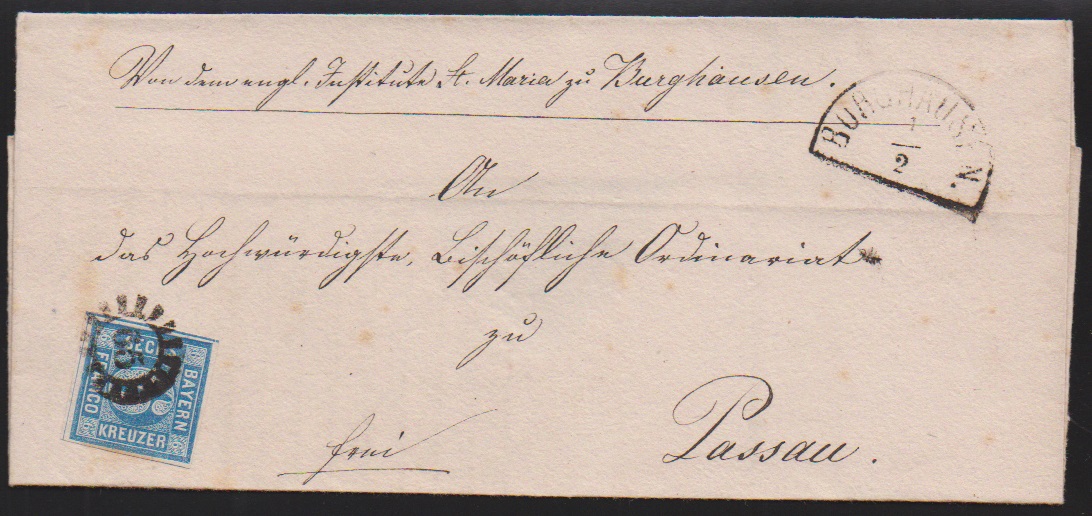 Von dem engl. Institute St. Maria zu Burghausen.
BURGHAUSEN.
1/2
An
das Hochwürdigste, Bischöfliche Ordinariat
zu
Passau.
frei
65
SECHS
BAYERN
KREUZER
FRANCO